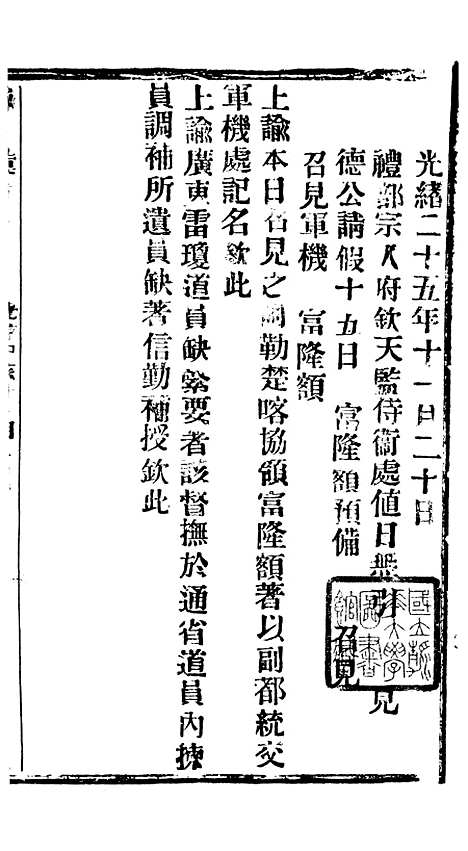 光緒二十五年十一月二十日
禮部宗人府欽天監侍衛處值日無引見
德公請假十五日 富隆額預備召見
召見軍機 富隆額
上諭本日召見之圖勒楚喀協領富隆額著以副都統交
軍機處記名欽此
上諭廣東雷瓊道員缺緊要著該督撫於通省道員內揀
員調補所遺員缺著信勤補授欽此